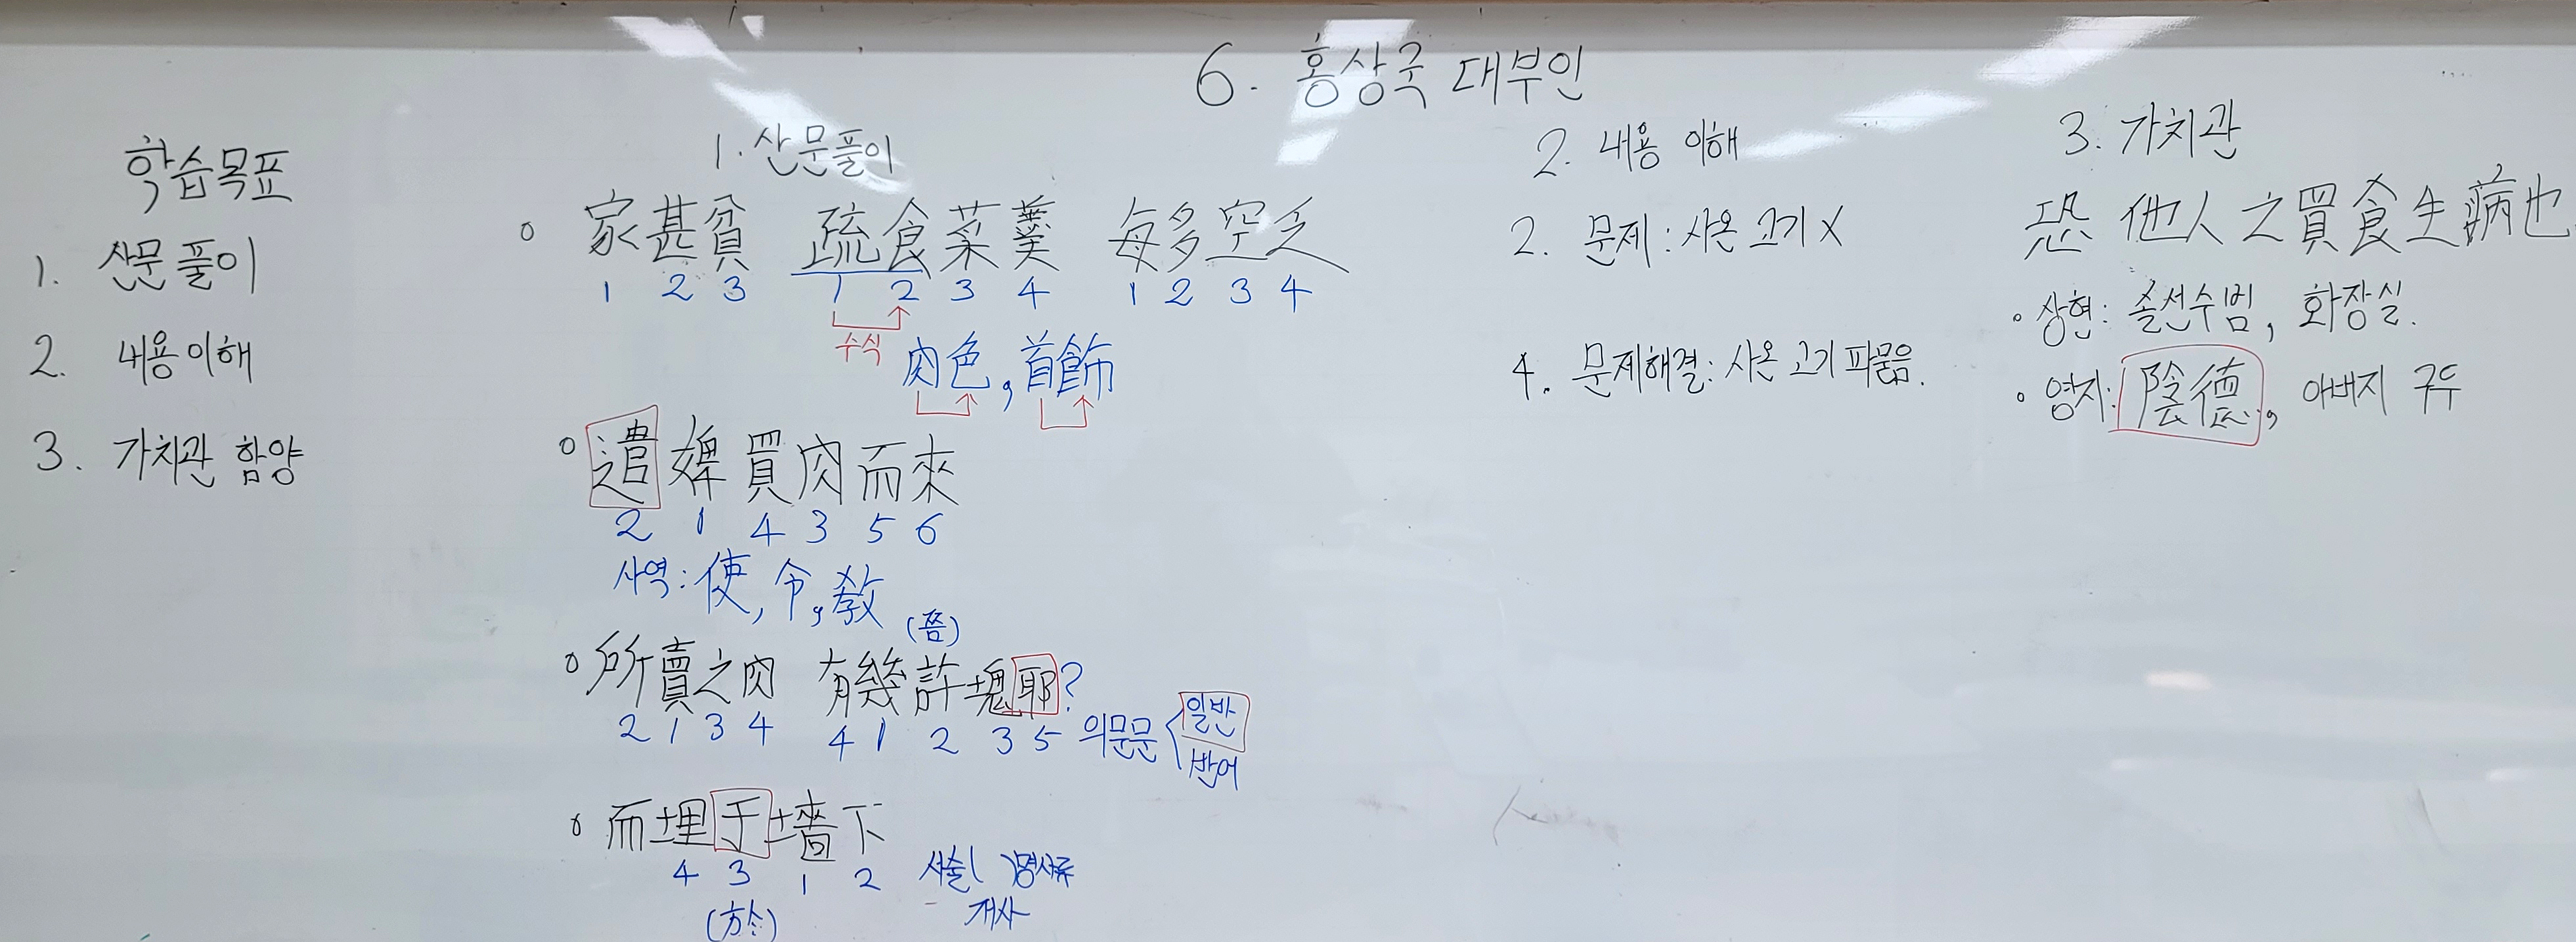 6. 홍상국 대부인
학습목표
1. 산문 풀이
2. 내용이해
3. 가치관 함양
1. 산문풀이
家甚貧 疏食菜羹 每多空乏
1 2 3 1 2 3 4 1 2 3 4
수식
肉色, 首飾
遣婢買肉而來
2 1 4 3 5 6
사역: 使, 令, 敎
(쯤)
所賣之肉 有幾許塊耶?
2 1 3 4 4 1 2 3 5 의문문 일반
반어
而埋于墻下
4 3 1 2 서술( )명사류
(於) 개사
2. 내용 이해
2. 문제: 사온 고기 X
4. 문제해결: 사온 고기 파묻음.
3. 가치관
恐他人之買食生病也
상현: 솔선수범, 화장실.
영지: 陰德, 아버지 구두